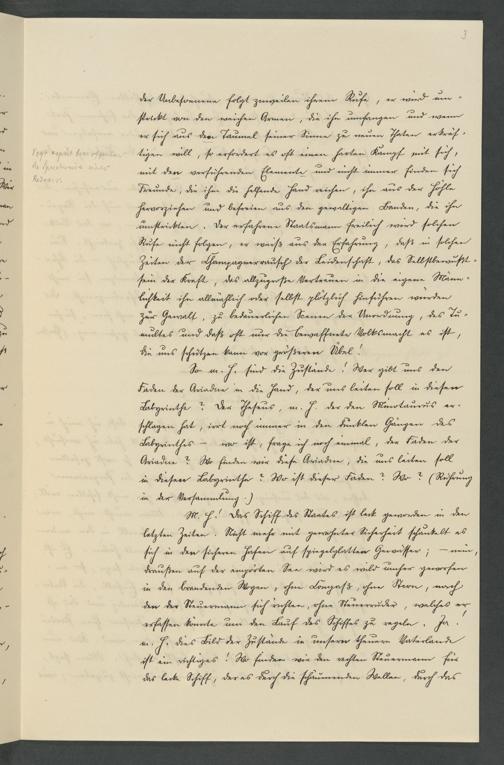 3
der Unbesonnene folgt zuweilen ihrem Rufe, er wird um-
strickt von den weichen Armen, die ihn umfangen und wenn
er sich aus dem Taumel seiner Sinne zu neuen Thaten erkräf-
tigen will, so erfordert es oft einen harten Kampf mit sich,
mit dem verführenden Elemente und nicht immer finden sich
Freunde, die ihm die helfende Hand reichen, ihn aus der Höhle
hervorziehen und befreien aus den gewaltigen Banden, die ihn
umstrickten. Der erfahrene Staatsmann freilich wird solchem
Rufe nicht folgen, er weiß aus der Erfahrung, daß in solchen
Zeiten der Champagnerrausch der Leidenschaft, das Selbstbewußt-
sein der Kraft, das allzugroße Vertrauen in die eigene Männ-
lichkeit ihn allmählich oder selbst plötzlich hinführen würden
zur Gewalt, zu bedauerlichen Scenen der Unordnung, des Tu-
multes und daß oft nur die bewaffnete Volksmacht es ist,
die uns schützen kann vor größerem Übel!
So m. H. sind die Zustände! Wer gibt uns den
Faden der Ariadne in die Hand, der uns leiten soll in diesem
Labyrinthe? Der Theseus, m. H. der den Minotaurus er-
schlagen hat, irrt noch immer in den dunklen Gängen des
Labyrinthes – wo ist, frage ich noch einmal, der Faden der
Ariadne? Wo finden wir diese Ariadne, die uns leiten soll
in diesem Labyrinthe? Wo ist dieser Faden? Wo? (Rührung
in der Versammlung.)
M. H! Das Schiff des Staates ist leck geworden in den
letzten Zeiten. Nicht mehr mit gewohnter Sicherheit schaukelt es
sich in dem sicheren Hafen auf spiegelglattem Gewässer; – nein,
draußen auf der empörten See wird es wild umher geworfen
in den brandenden Wogen, ohne Compaß, ohne Stern, nach
dem der Steuermann sich richten, ohne Steuerruder, welches er
erfassen könnte um den Lauf des Schiffes zu regeln. Ja!
m. H. dies Bild der Zustände in unserm theuern Vaterlande
ist ein richtiges! Wo finden wir den rechten Steuermann für
das lecke Schiff, der es durch die schäumenden Wellen, durch das